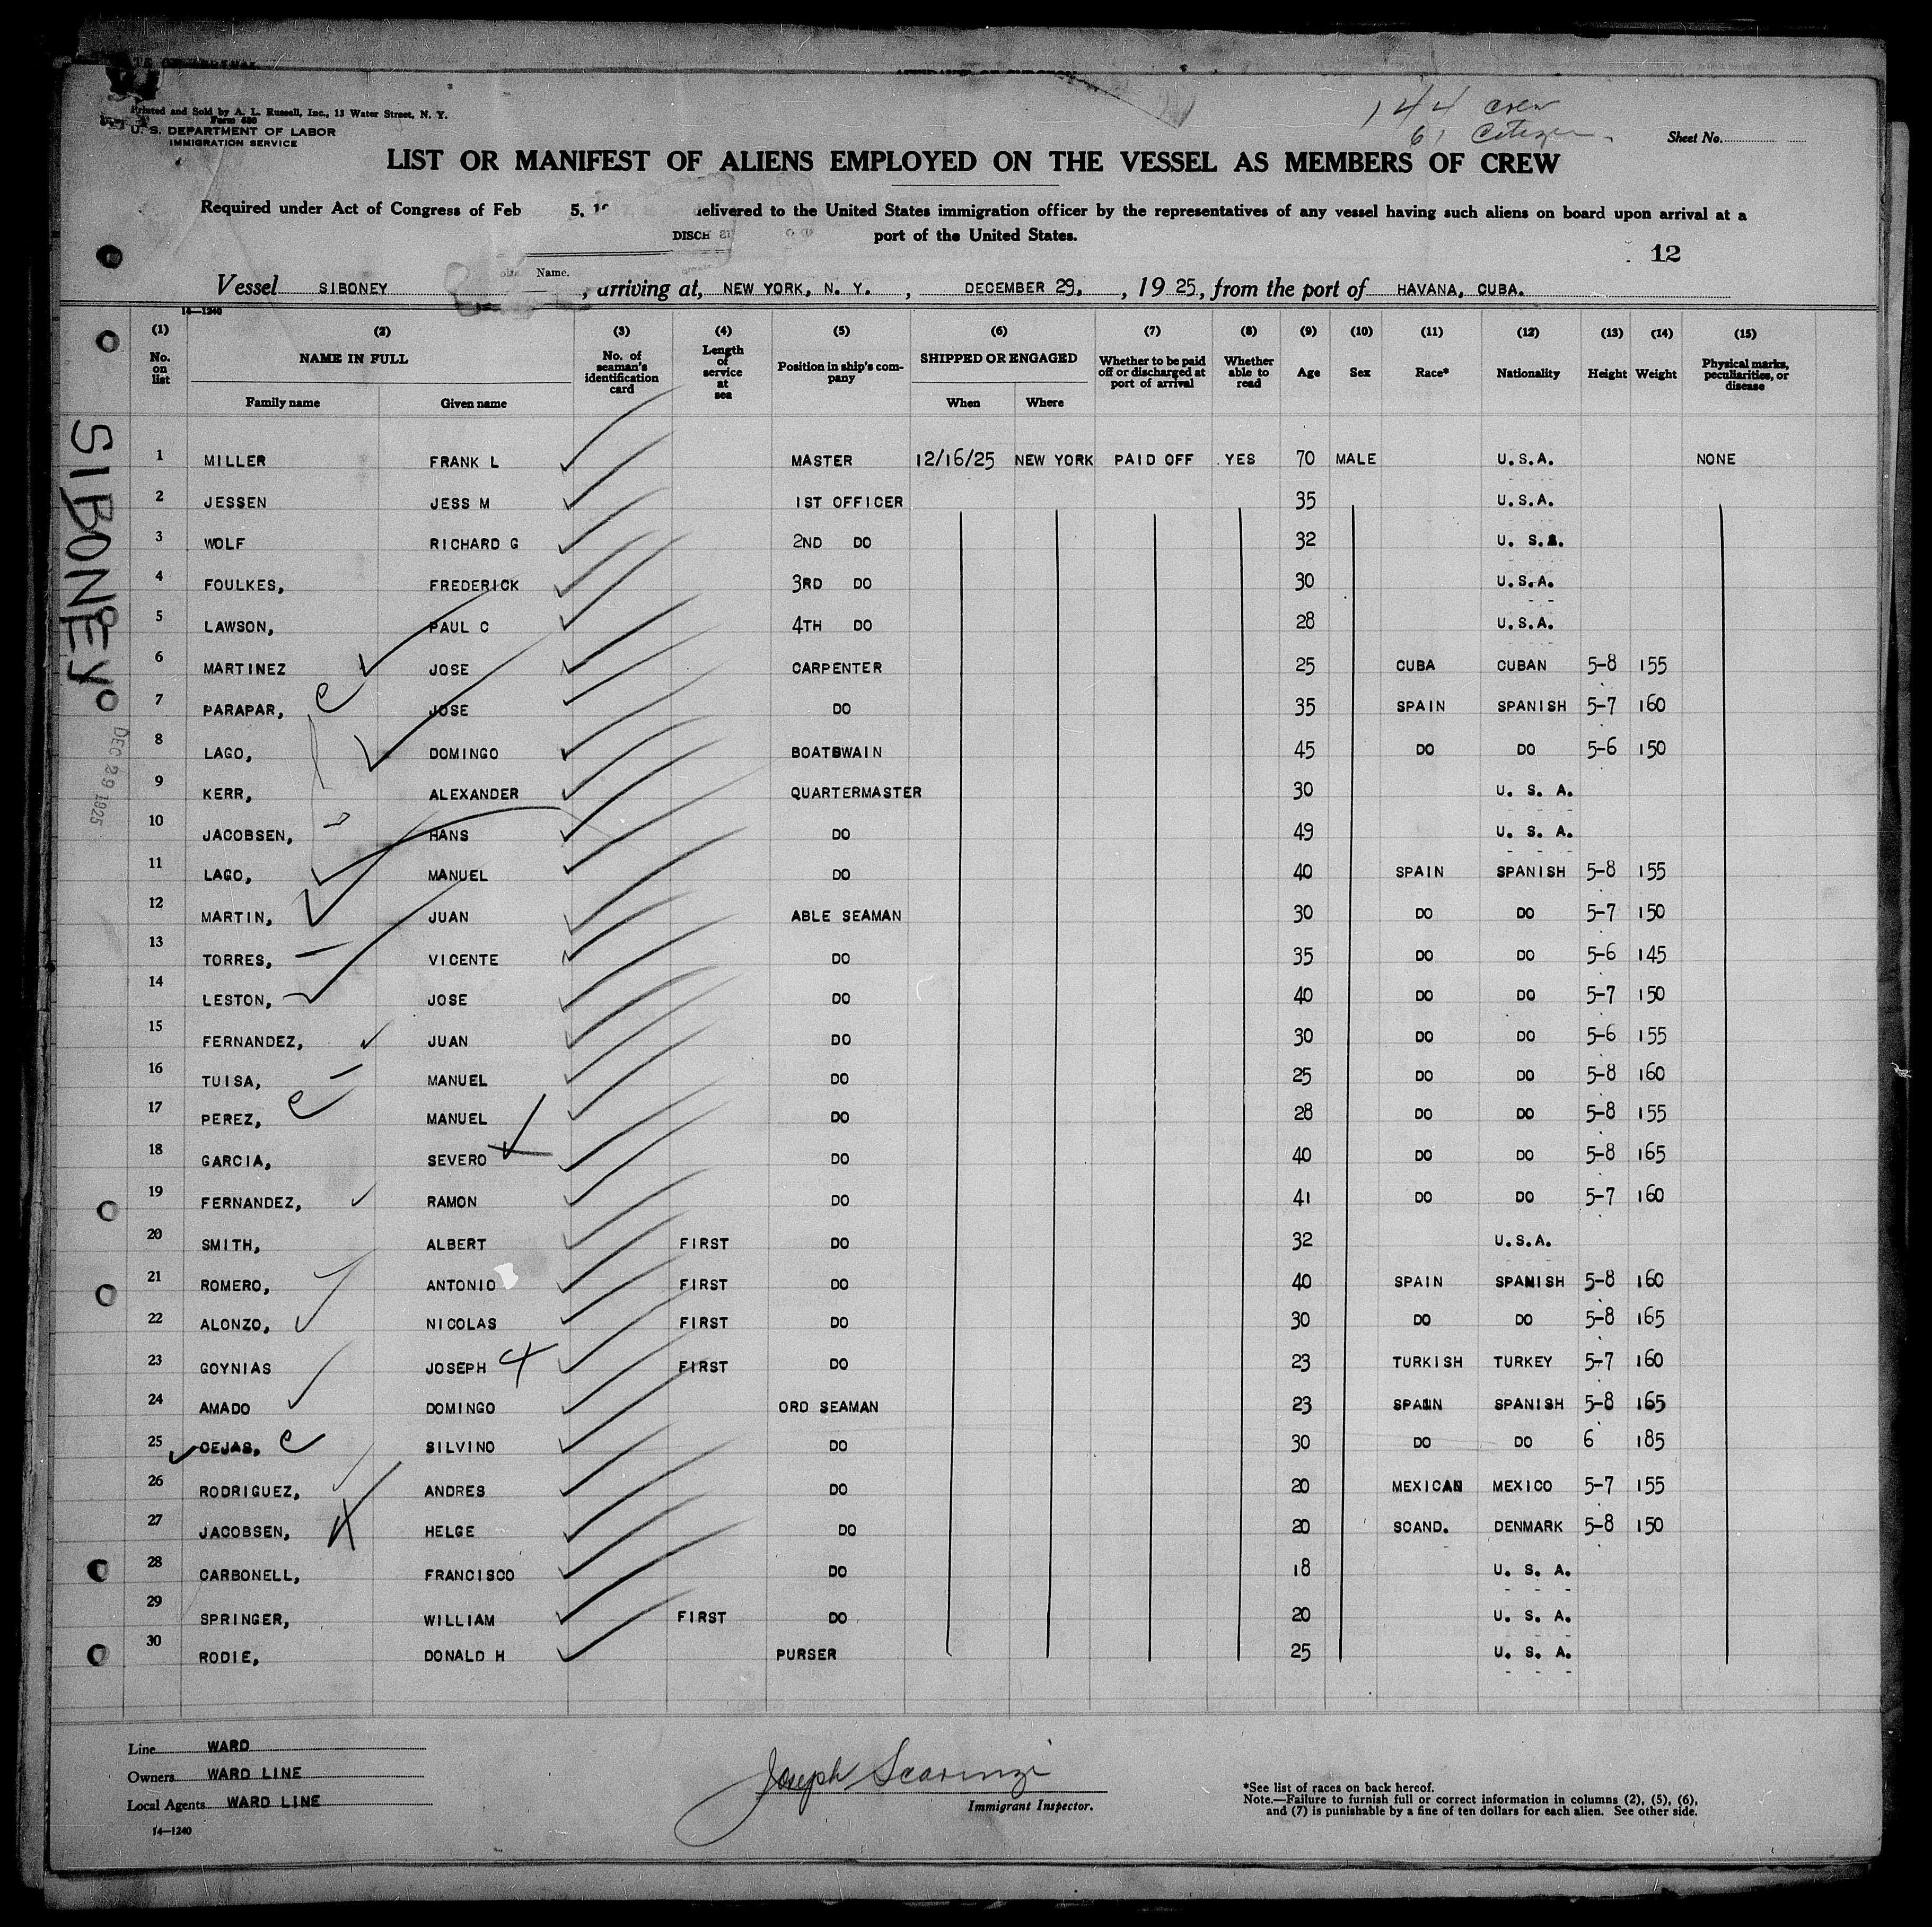 Printed and Sold by A. L. Russell, Inc., 13 Water Street, N. Y.
Form 680
U. S. DEPARTMENT OF LABOR
IMMIGRATION SERVICE
144 crew
61 Citizen
Sheet No.
LIST OR MANIFEST OF ALIENS EMPLOYED ON THE VESSEL AS MEMBERS OF CREW
Required under Act of Congress of Feb 5, 19 delivered to the United States immigration officer by the representatives of any vessel having such aliens on board upon arrival at a
DISCH port of the United States.
12
Name.
Vessel SIBONEY, arriving at, NEW YORK, N. Y., DECEMBER 29, 1925, from the port of HAVANA, CUBA.
14—1240
(1) (2) (3) (4) (5) (6) (7) (8) (9) (10) (11) (12) (13) (14) (15)
No. on list NAME IN FULL No. of seaman's identification card Length of service at sea Position in ship's company SHIPPED OR ENGAGED Whether to be paid off or discharged at port of arrival Whether able to read Age Sex Race* Nationality Height Weight Physical marks, peculiarities, or disease
Family name Given name When Where
1 MILLER FRANK L MASTER 12/16/25 NEW YORK PAID OFF YES 70 MALE U.S.A. NONE
2 JESSEN JESS M 1ST OFFICER 35 U.S.A.
3 WOLF RICHARD G 2ND DO 32 U. S.A.
4 FOULKES, FREDERICK 3RD DO 30 U.S.A.
5 LAWSON, PAUL C 4TH DO 28 U.S.A.
6 MARTINEZ JOSE CARPENTER 25 CUBA CUBAN 5-8 155
7 PARAPAR, JOSE DO 35 SPAIN SPANISH 5-7 160
8 LAGO, DOMINGO BOATSWAIN 45 DO DO 5-6 150
9 KERR, ALEXANDER QUARTERMASTER 30 U. S. A.
10 JACOBSEN, HANS DO 49 U. S. A.
11 LAGO, MANUEL DO 40 SPAIN SPANISH 5-8 155
12 MARTIN, JUAN ABLE SEAMAN 30 DO DO 5-7 150
13 TORRES, VICENTE DO 35 DO DO 5-6 145
14 LESTON, JOSE DO 40 DO DO 5-7 150
15 FERNANDEZ, JUAN DO 30 DO DO 5-6 155
16 TUISA, MANUEL DO 25 DO DO 5-8 160
17 PEREZ, MANUEL DO 28 DO DO 5-8 155
18 GARCIA, SEVERO DO 40 DO DO 5-8 165
19 FERNANDEZ, RAMON DO 41 DO DO 5-7 160
20 SMITH, ALBERT FIRST DO 32 U.S.A.
21 ROMERO, ANTONIO FIRST DO 40 SPAIN SPANISH 5-8 160
22 ALONZO, NICOLAS FIRST DO 30 DO DO 5-8 165
23 GOYNIAS JOSEPH FIRST DO 23 TURKISH TURKEY 5-7 160
24 AMADO DOMINGO ORD SEAMAN 23 SPAIN SPANISH 5-8 165
25 CEJAS, SILVINO DO 30 DO DO 6 185
26 RODRIGUEZ, ANDRES DO 20 MEXICAN MEXICO 5-7 155
27 JACOBSEN, HELGE DO 20 SCAND. DENMARK 5-8 150
28 CARBONELL, FRANCISCO DO 18 U. S. A.
29 SPRINGER, WILLIAM FIRST DO 20 U. S. A.
30 RODIE, DONALD H PURSER 25 U. S. A.
SIBONEY
DEC 29 1925
Line WARD
Owners WARD LINE
Local Agents WARD LINE
14—1240
Joseph Scarinzi
Immigrant Inspector.
*See list of races on back hereof.
Note.—Failure to furnish full or correct information in columns (2), (5), (6),
and (7) is punishable by a fine of ten dollars for each alien. See other side.